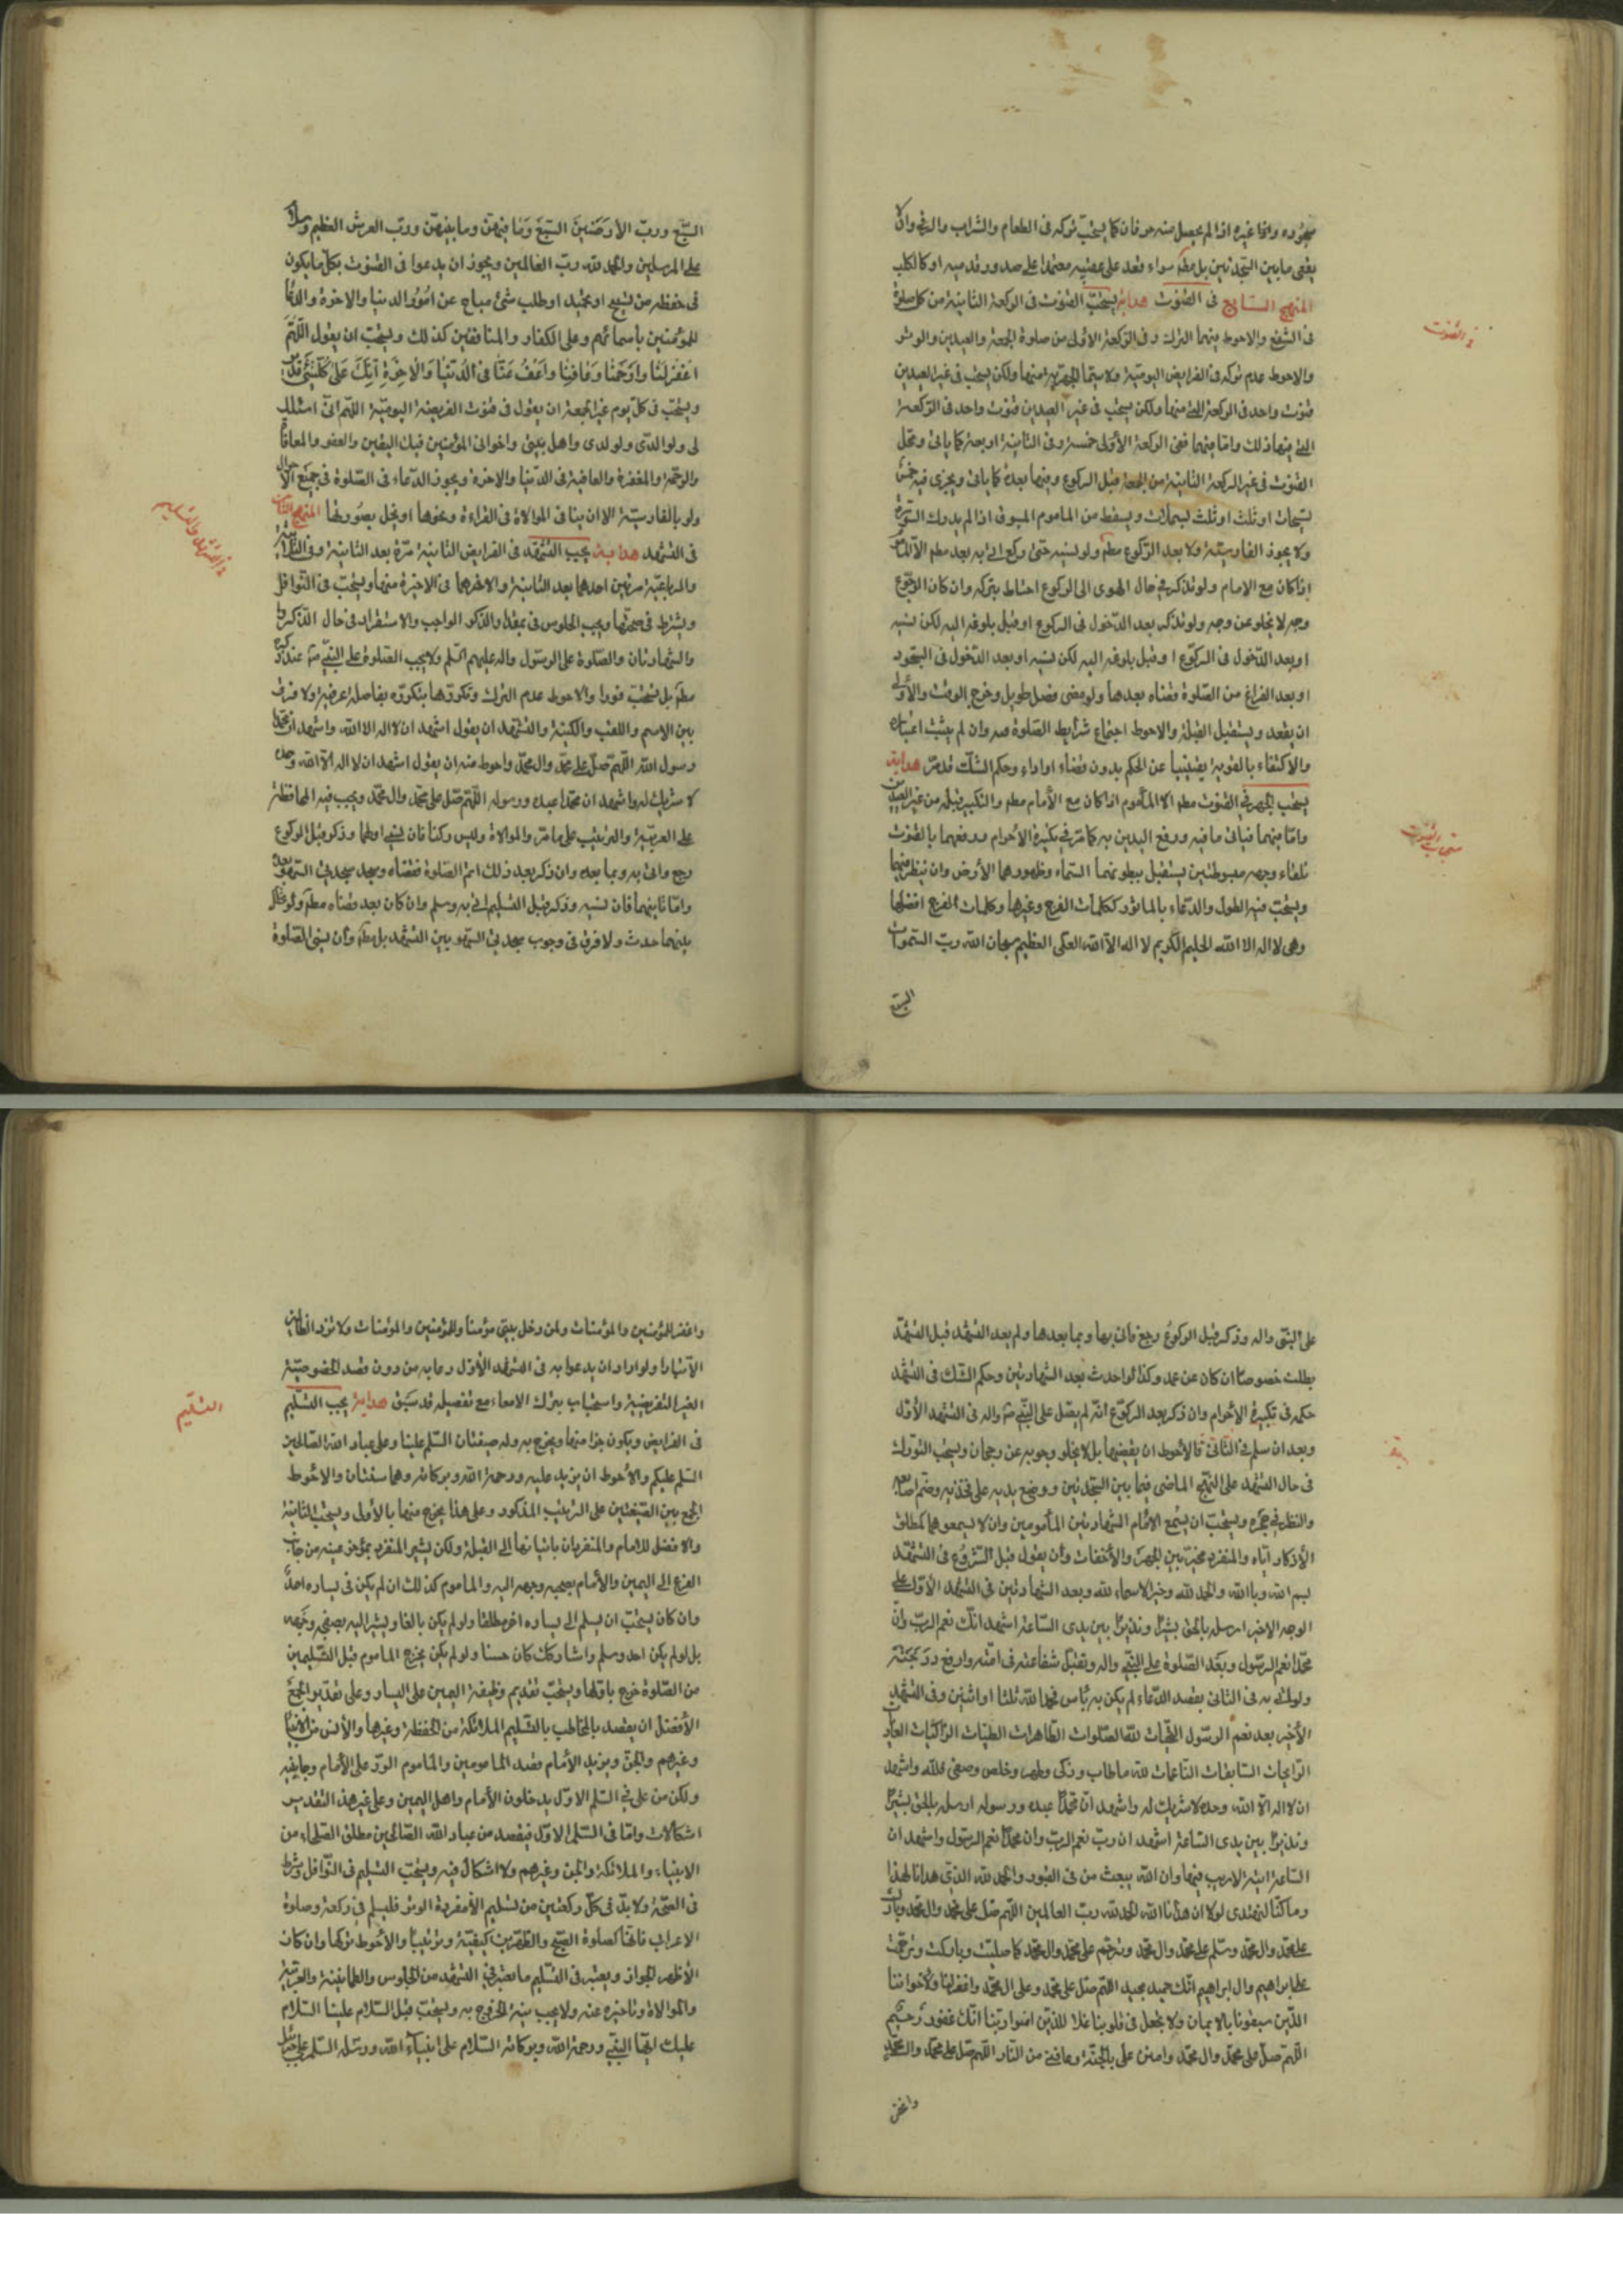 سجوده واذا غيره اذا لم يحصل منه حرفان كما يستحب تركه فى الطعام والشراب والرقى وان لا
يقعى ما بين السجدتين بل مطم سواء قعد على عقبيه معتمدا على صدور قدميه او كالكلب
المنهج السابع فى القنوت هداية يستحب القنوت فى الركعة الثانية من كل صلوة
فى الشفع والاحوط فيهما الترك وفى الركعة الاولى من صلوة الجمعة والعيدين والوتر
والاحوط عدم تركه فى الفرايض اليومية ولا سيما الجهرية منها ولكن يستحب فى غير العيدين
قنوت واحد فى الركعة التى منها ولكن يستحب فى غير العيدين قنوت واحد فى الركعة
التى فيها ذلك واما فيهما ففى الركعة الأولى خمسة وفى الثانية اربعة كما ياتى ومحل
القنوت فى غير الركعة الثانية من الجمعة قبل الركوع وفيها بعده كما ياتى ويجزى فيه خمس
تسبيحات او ثلث او ثلث بسملات ويسقط من الماموم المسبوق اذا لم يدرك السورة
ولا يجوز الفارسية ولا بعد الركوع مطم ولو نسيه حتى ركع اتى به بعد مطم الا
اذا كان مع الامام ولو تذكره فى حال الهوى الى الركوع احتاط بتركه وان كان الرجوع
وجه لا يخلو عن وجه ولو تذكر بعد الدخول فى الركوع او قبل بلوغه اليه لكن نسيه
او بعد الدخول فى الركوع او قبل بلوغه اليه لكن نسيه او بعد الدخول فى السجود
او بعد الفراغ من الصلوة قضاه بعدها ولو مضى فصل طويل وخرج الوقت والأولى
ان يقعد ويستقبل القبلة والاحوط اجتماع شرايط الصلوة فيه وان لم يثبت اعتباره
والاكتفاء بالقوية يغنينا عن الحكم بدون قضاء او اداء وحكم الشك قد مر هداية
يستحب الجهر فى القنوت مطم الا المأموم اذا كان مع الأمام مطم والتكبير قبله من غير العيدين
واما فيهما فياتى ما فيه ورفع اليدين به كما مر فى تكبيرة الأحرام ورفعهما بالقنوت
تلقاء وجهه مبسوطتين يستقبل ببطونهما السماء وظهورهما الأرض وان ينظر فيهما
ويستحب فيه الطول والدعاء بالمأثور ككلمات الفرج وغيرها وكلمات الفرج افضلها
وهى لا اله الا الله الحليم الكريم لا اله الا الله العلى العظيم سبحان الله رب السموات
السبع
فى القنوت
مستحبات القنوت
السبع ورب الأرضين السبع وما فيهن وما بينهن ورب العرش العظيم وسلام
على المرسلين والحمد لله رب العالمين ويجوز ان يدعوا فى القنوت بكل ما يكون
فى حفظه من تسبيح او تحميد او طلب شئ مباح عن امور الدنيا والاخرة والدعاء
للمؤمنين باسمائهم وعلى الكفار والمنافقين كذلك ويستحب ان يقول اللهم
اغفر لنا وارحمنا وعافنا واعف عنا فى الدنيا والاخرة انك على كل شئ قدير
ويستحب فى كل يوم غير الجمعة ان يقول فى قنوت الفريضة اليومية اللهم انى اسئلك
لى ولوالدى ولولدى واهل بيتى واخوانى المؤمنين فيك اليقين والعفو والمعافاة
والرحمة والمغفرة والعافية فى الدنيا والاخرة ويجوز الدعاء فى الصلوة فى جميع الاحوال
ولو بالفارسية الا ان ينافى الموالاة فى القراءة ونحوها او يخل بصورتها المنهج الثامن
فى التشهد هداية يجب التشهد فى الفرايض الثانية مرة بعد الثانية وفى الثلاثية
والرباعية مرتين احدهما بعد الثانية والاخرهما فى الاخيرة منها ويستحب فى النوافل
ويشترط فى صحتها ويجب الجلوس فى بقدر والذكر الواجب والاستقرار فى حال الذكر
والشهادتان والصلوة على الرسول واله عليهم السلم ولا يجب الصلوة على النبى ص عند ذكره
مطم بل تستحب فورا والاحوط عدم الترك وتكررها بتكرره بفاصلة عرفية ولا فرق
بين الاسم واللقب والكنية والتشهد ان يقول اشهد ان لا اله الا الله واشهد ان محمدا
رسول الله اللهم صل على محمد وال محمد واحوط منه ان يقول اشهد ان لا اله الا الله وحده
لا شريك له واشهد ان محمدا عبده ورسوله اللهم صل على محمد وال محمد ويجب فيه المحافظة
على العربية والترتيب على ما مر والموالاة وليس ركنا فان نسى اولها وذكر قبل الركوع
رجع واتى به وبما بعده وان ذكر بعد ذلك اتم الصلوة فقضاه وسجد سجدتى السهو بعده
واما ثانيهما فان نسيه وذكره قبل التسليم اتى به وسلم وان كان بعد قضاه مطم ولو تخلل
بينهما حدث ولا فرق فى وجوب سجدتى السهو بين التشهد بل مطم وأن نسى الصلوة
فى التشهد والتسليم
على النبى واله وذكر قبل الركوع رجع فاتى بها وبما بعدها ولم يعد التشهد قبل التشهد
بطلت خصوصا ان كان عن عمد وكذا لو احدث بعد الشهادتين وحكم الشك فى التشهد
حكمه فى تكبيرة الأحرام وان ذكر بعد الركوع انه لم يصل على النبى ص واله فى التشهد الأول
وبعد ان سلم فى الثانى فالأحوط ان يقضيها بل لا يخلو وجوبه عن رجحان ويستحب التورك
فى حال التشهد على النهج الماضى فيما بين السجدتين ووضع يديه على فخذيه وضم اصابعه
والنظر فى حجره ويستحب ان يسمع الامام الشهادتين المأمومين وان لا يسمعوهما كمطلق
الأذكار اياه والمنفرد مخير بين الجهر والأخفات وأن يقول قبل الشروع فى التشهد
بسم الله وبالله والحمد لله وخير الاسماء لله وبعد الشهادتين فى التشهد الأول على
الوجه الاخير ارسله بالحق بشيرا ونذيرا بين يدى الساعة اشهد انك نعم الرب وان
محمدا نعم الرسول وبعد الصلوة على النبى واله وتقبل شفاعته فى امته وارفع درجته
ولو اتى به فى الثانى بقصد الدعاء لم يكن به بأس ثم الحمد لله ثلثا او اثنين وفى التشهد
الأخير بعد نعم الرسول التحيات لله الصلوات الطاهرات الطيبات الزاكيات الغاديات
الرائحات السابغات الناعمات لله ما طاب وزكى وطهر وخلص وصفى فلله واشهد
ان لا اله الا الله وحده لا شريك له واشهد ان محمدا عبده ورسوله ارسله بالحق بشيرا
ونذيرا بين يدى الساعة اشهد ان رب نعم الرب وان محمدا نعم الرسول واشهد ان
الساعة اتية لا ريب فيها وان الله يبعث من فى القبور والحمد لله الذى هدانا لهذا
وما كنا لنهتدى لولا ان هدانا الله الحمد لله رب العالمين اللهم صل على محمد وال محمد وبارك
على محمد وال محمد وسلم على محمد وال محمد وترحم على محمد وال محمد كما صليت وباركت وترحمت
على ابراهيم وال ابراهيم انك حميد مجيد اللهم صل على محمد وعلى ال محمد واغفر لنا ولاخواننا
الذين سبقونا بالايمان ولا تجعل فى قلوبنا غلا للذين امنوا ربنا انك غفور رحيم
اللهم صل على محمد وال محمد وامنن على بالجنة وعافنى من النار اللهم صل على محمد وال محمد
واغفر
واغفر للمؤمنين والمؤمنات ولمن دخل بيتى مؤمنا وللمؤمنين والمؤمنات ولا تزد الظالمين
الا تبارا ولو اراد ان يدعوا به فى التشهد الأول دعا به من دون قصد الخصوصية
الغير التفريضية واستحباب بترك الامعاء مع تفصيله قد سبق هداية يجب التسليم
فى الفرايض ويكون جزأ منها ويخرج به وله صيغتان السلم علينا وعلى عباد الله الصالحين
السلم عليكم والأحوط ان يزيد عليه ورحمة الله وبركاته وهما سنتان والاحوط
الجمع بين الصيغتين على الترتيب المذكور وعلى هذا يخرج منها بالأولى ويستحب الثانية
والافضل للامام والمنفرد ان ياتيا بها الى القبلة ولكن يشير المنفرد بمؤخر عينه من جانب
الفرع الى اليمين والأمام بصفحة وجهه اليه والماموم كذلك ان لم يكن فى يساره احد
وان كان يستحب ان يسلم الى يساره اخر مطلقا ولو لم يكن بالغا ويشير اليه بصفحة وجهه
بل لو لم يكن احد وسلم واشار كك كان حسنا ولو لم يكن يخرج الماموم قبل التسليمين
من الصلوة خرج باولها ويستحب تقديم وظيفة اليمين على اليسار وعلى تقدير الجمع
الأفضل ان يقصد بالمخاطب بالتسليم الملائكة من الحفظة وغيرها والأنس من الانبياء
وغيرهم والجن ويزيد الأمام قصد المامومين والماموم الرد على الأمام وجانبيه
ولكن من على فى السلم الاول يدخلون الأمام واهل اليمين وعلى غير هذ التقدير
اشكالات واما فى السلم الاول فيقصد من عباد الله الصالحين مطلق الصلحاء من
الانبياء والملائكة والجن وغيرهم ولا اشكال فيه ويستحب التسليم فى النوافل وشرط
فى الصحة ولا بد فى كل ركعتين من تسليم الا مفردة الوتر فليسلم فى ركعة وصلوة
الاعراب فانها كصلوة الصبح والظهرين كيفية وترتيبا والأحوط تركها وان كان
الأظهر الجواز ويعتبر فى التسليم ما يعتبر فى التشهد من الجلوس والطمانينة والعربية
والموالاة وتاخيره عنه ولا يجب نية الخروج به ويستحب قبل السلام علينا السلام
عليك ايها النبى ورحمة الله وبركاته السلام على انبياء الله ورسله السلم على جبرئيل
التسليم